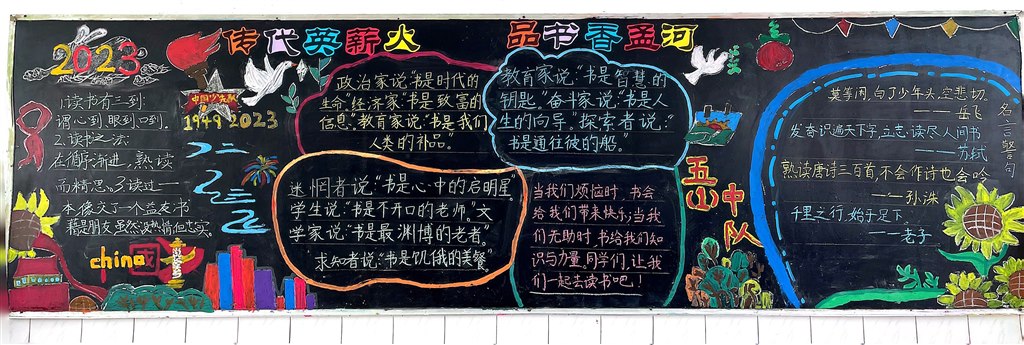 2023
传代英薪火
品书香孟河
1.读书有三到:
谓心到,眼到,口到.
2.读书之法:
在循序渐进,熟读
而精思。3.读过一
本像交了一个益友书
籍是朋友,虽然没热情但忠实。
china
中国少先队
1949 2023
政治家说:"书是时代的
生命。"经济家:"书是致富的
信息。"教育家说:"书是我们
人类的补品。"
教育家说:"书是智慧的
钥匙。"奋斗家说:"书是人
生的向导。"探索者说:"
书是通往彼的船。
迷惘者说:"书是心中的启明星"
学生说:"书是不开口的老师。"文
学家说:"书是最渊博的老者。"
求知者说:"书是饥饿的美餐"
当我们烦恼时,书会
给我们带来快乐;当我
们无助时,书给我们知
识与力量。同学们,让我
们一起去读书吧!
五(1)中队
名言警句
莫等闲,白了少年头,空悲切。
——岳飞
发奋识遍天下字,立志读尽人间书
——苏轼
熟读唐诗三百首,不会作诗也会吟
——孙洙
千里之行,始于足下
——老子